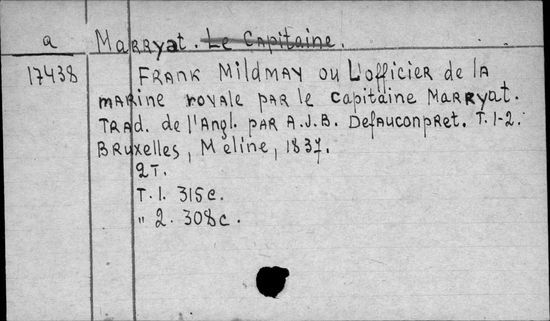 a Marryat. Le Capitaine.
17438 Frank Mildmay ou L'officier de la
marine royale par le capitaine Marryat.
Trad. de l'Angl. par A.J.B. Defauconpret. T. 1-2.
Bruxelles, Meline, 1837.
2T.
T. 1. 315c.
" 2. 308c.